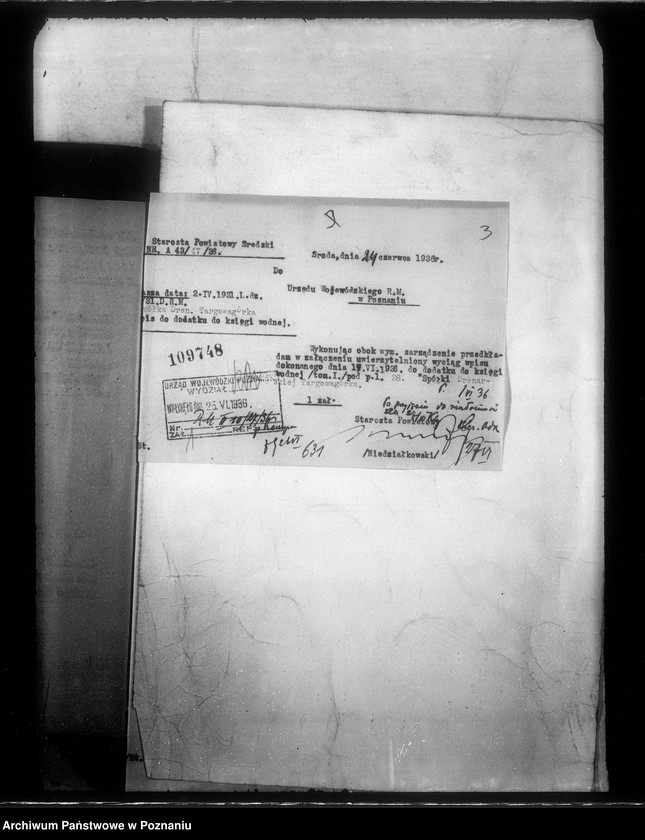 3
Starosta Powiatowy Sredzki
NR. A 43/ /36.
Środa, dnia 24 czerwca 1936r.
Do
Urzędu Wojewódzkiego R.M.
w Poznaniu
asza data: 2.IV.1931.L.dz.
/31.D.R.M.
ółka Dren. Targowagórka
is do dodatku do księgi wodnej.
Wykonując obok wym. zarządzenie przedkła-
dam w załączeniu uwierzytelniony wyciąg wpisu
dokonanego dnia 19.VI.1936. do dodatku do księgi
wodnej /tom.I./pod p.l. 28. "Spółki Drenar-
skiej Targowagórka.
1 zał.
109748
URZĄD WOJEWÓDZKI POZNAŃ
WYDZIAŁ
WPŁYNĘŁO DN. 25.VI.1936.
Nr.
ZAŁ. REF.
Starosta Powiatowy
/Niedziałkowski/
St.
631
/St.
Archiwum Państwowe w Poznaniu